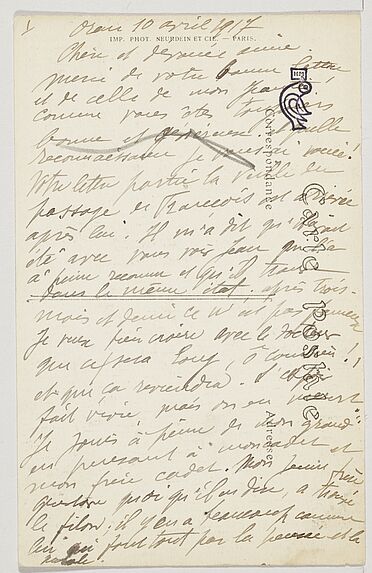 1
Oran 10 avril 1917
IMP. PHOT. NEURDEIN ET CIE. — PARIS.
Chère et dévouée amie.
merci de votre bonne lettre
et de celle de mon Jean
comme vous êtes toujours
bonne et quelle
reconnaissance je vous ai vouée!
Votre lettre partie la veille du
passage de François est arrivée
après lui. Il m'a dit qu'il avait
été avec vous voir Jean qui l'a
à peine reconnu et qu'il
dans le même état, après trois
mois et demi ce n'est pas
Je veux bien croire avec le docteur
que ce sera long, ô combien!
et que ça reviendra.
fait vivre, mais on en meurt
Je jouis à peine de mon grand
en pensant à mon cadet et
mon frère cadet. Mon
Gustave quoi qu'il en dise, a trouvé
le filon; il y en a beaucoup comme
lui qui font tout par la pensée et la
parole.
Correspondance
Carte postale
Adresse
HM